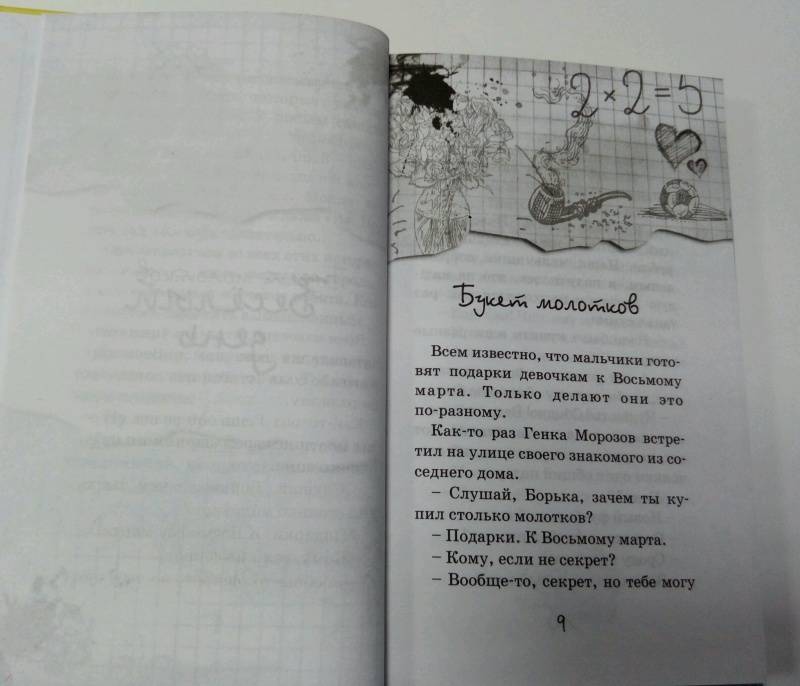 2 × 2 = 5
Букет молотков
Всем известно, что мальчики гото-
вят подарки девочкам к Восьмому
марта. Только делают они это
по-разному.
Как-то раз Генка Морозов встре-
тил на улице своего знакомого из со-
седнего дома.
– Слушай, Борька, зачем ты ку-
пил столько молотков?
– Подарки. К Восьмому марта.
– Кому, если не секрет?
– Вообще-то, секрет, но тебе могу
9